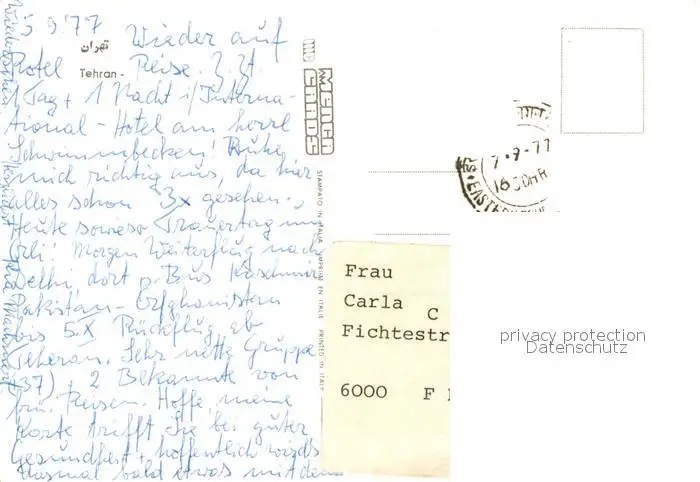 5 9 '77 Wieder auf
تهران
Rotel - Reise. Z. Zt.
Tehran -
1 Tag + 1 Nacht i/Interna-
tional - Hotel am herrl
Schwimmbecken! Ruhe
mich richtig aus, da hier
alles schon 3x gesehen.
Heute sowieso Trauertag um
Ali! Morgen Weiterflug nach
Delhi, dort p. Bus Kaschmir
Pakistan - Afghanistan
bis 5.X Rückflug ab
Teheran. Sehr nette Gruppe
(37), 2 Bekannte von
frü. Reisen. Hoffe, meine
Karte trifft Sie bei guter
Gesundheit + hoffentlich wird's
diesmal bald etwas mit dem
Wiedersehen
STAMPATO IN ITALIA IMPRIME EN ITALIE PRINTED IN ITALY
7 - 9 - 77
16 30HR
EASTERN
Frau
Carla C
Fichtestr
6000 F
privacy protection
Datenschutz